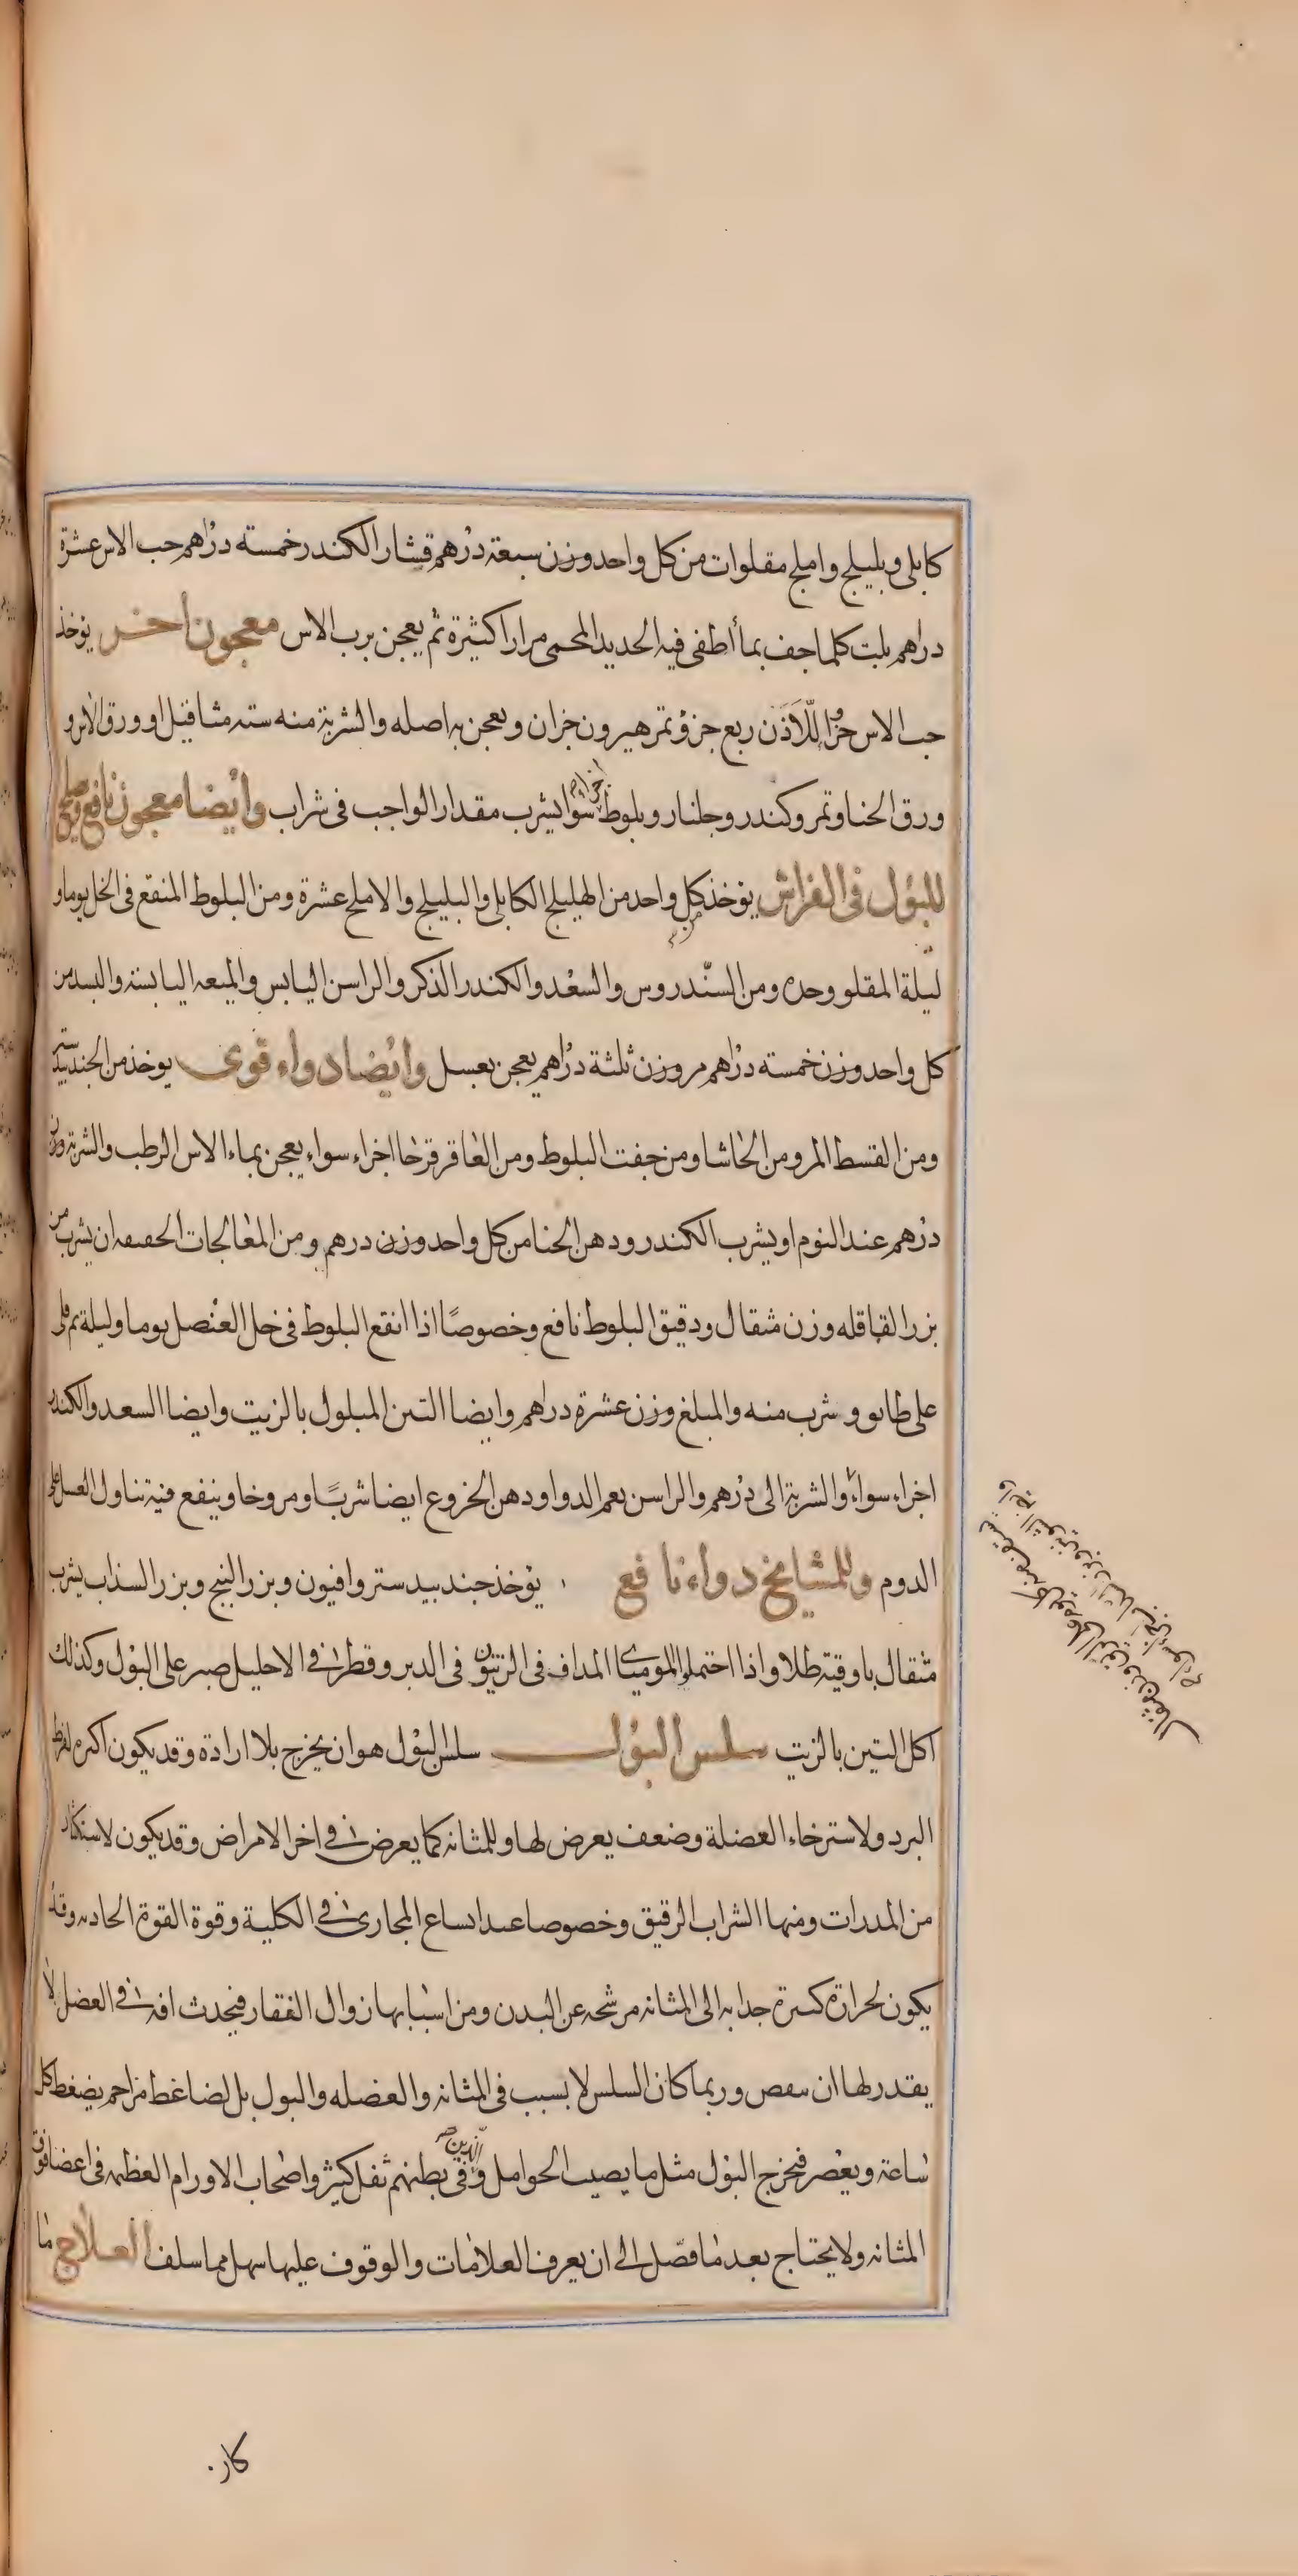 كابلى وبليلج واملج مقلوات من كل واحد وزن سبعة درهم قشار الكندر خمسة دراهم حب الاس عشرة
دراهم يلت كلما جف بماء أطفى فيه الحديد المحمى مرارا كثيرة ثم يعجن برب الاس معجون أخر يوخذ
حب الاس جزؤ اللاذن ربع جزؤ تمر هيرون جزان ويعجن به اصله والشربة منه سته مثاقيل او ورق الاس و
ورق الحنا وتمر وكندر وجلنار وبلوط اجزاء سوا يشرب مقدار الواجب فى شراب وايضا معجون نافع
للبول فى الفراش يوخذ من كل واحد من الهليلج الكابلى والبليلج والاملج عشرة ومن البلوط المنقع فى الخل يوما و
ليلة المقلو وحده ومن السندروس والسعد والكندر الذكر والراسن اليابس والميعه اليابسة والبسد من
كل واحد وزن خمسة دراهم مر وزن ثلثة دراهم يعجن بعسل وايضا دواء قوى يوخذ من الجندبيدستر
ومن القسط المر ومن الحاشا ومن جفت البلوط ومن العاقر قرحا اجزاء سواء يعجن بماء الاس الرطب والشربة وزن
درهم عند النوم او يشرب الكندر ودهن الحنا من كل واحد وزن درهم ومن المعالجات الحفيفه ان يشرب من
بزر القاقله وزن مثقال ودقيق البلوط نافع وخصوصًا اذا انقع البلوط فى خل العنصل يوما وليلة ثم قلى
على طابو وشرب منه والمبلغ وزن عشرة دراهم وايضا التين المبلول بالزيت وايضا السعد والكندر
اجزاء سواءً والشربة الى درهم والراسن نعم الدوا ودهن الخروع ايضا شربًا ومروخا وينفع فيه تناول العسل على
الدوم وللمشايخ دواء نافع يوخذ جندبيدستر وافيون وبزر البنج وبزر السذاب يشرب
مثقال باوقية طلا واذا احتملوا الموميا المداف فى الزيتون فى الدبر وقطر فى الاحليل صبر على البول وكذلك
اكل التين بالزيت سلس البول سلس البول هو ان يخرج بلا ارادة وقد يكون اكثره لفرط
البرد ولاسترخاء العضلة وضعف يعرض لها وللمثانه كما يعرض فى اخر الامراض وقد يكون لاستكثار
من المدرات ومنها الشراب الرقيق وخصوصا عند اتساع المجارى فى الكلية وقوة القوة الجاذبه وقد
يكون لحرارة كثيرة جذابه الى المثانه مرشحه عن البدن ومن اسبابها زوال الفقار فيحدث افه فى العضل لا
يقدر لها ان تنقبض وربما كان السلس لا بسبب فى المثانه والعضله والبول بل لضاغط مزاحم يضغط كل
ساعة ويعصر فيخرج البول مثل ما يصيب الحوامل والذين فى بطنهم ثفل كثير واصحاب الاورام العظيمه فى اعضا فوق
المثانه ولا يحتاج بعد ما فصل الى ان يعرف العلامات والوقوف عليها سهل مما سلف العلاج ما
كار